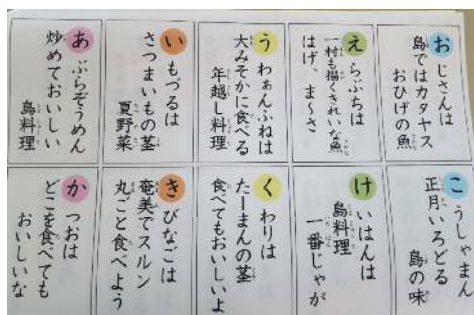 あぶらぞうめん
炒めておいしい
島料理
いもづるは
さつまいもの茎
夏野菜
うわぁんふねは
大みそかに食べる
年越し料理
えらぶちは
一村も描くきれいな魚
はげ、ま〜さ
おじさんは
島ではカタヤス
おひげの魚
かつおは
どこを食べても
おいしいな
きびなごは
奄美でスルン
丸ごと食べよう
くわりは
たーまんの茎
食べてもおいしいよ
けいはんは
島料理
一番じゃが
こうしゃまん
正月いろどる
島の味